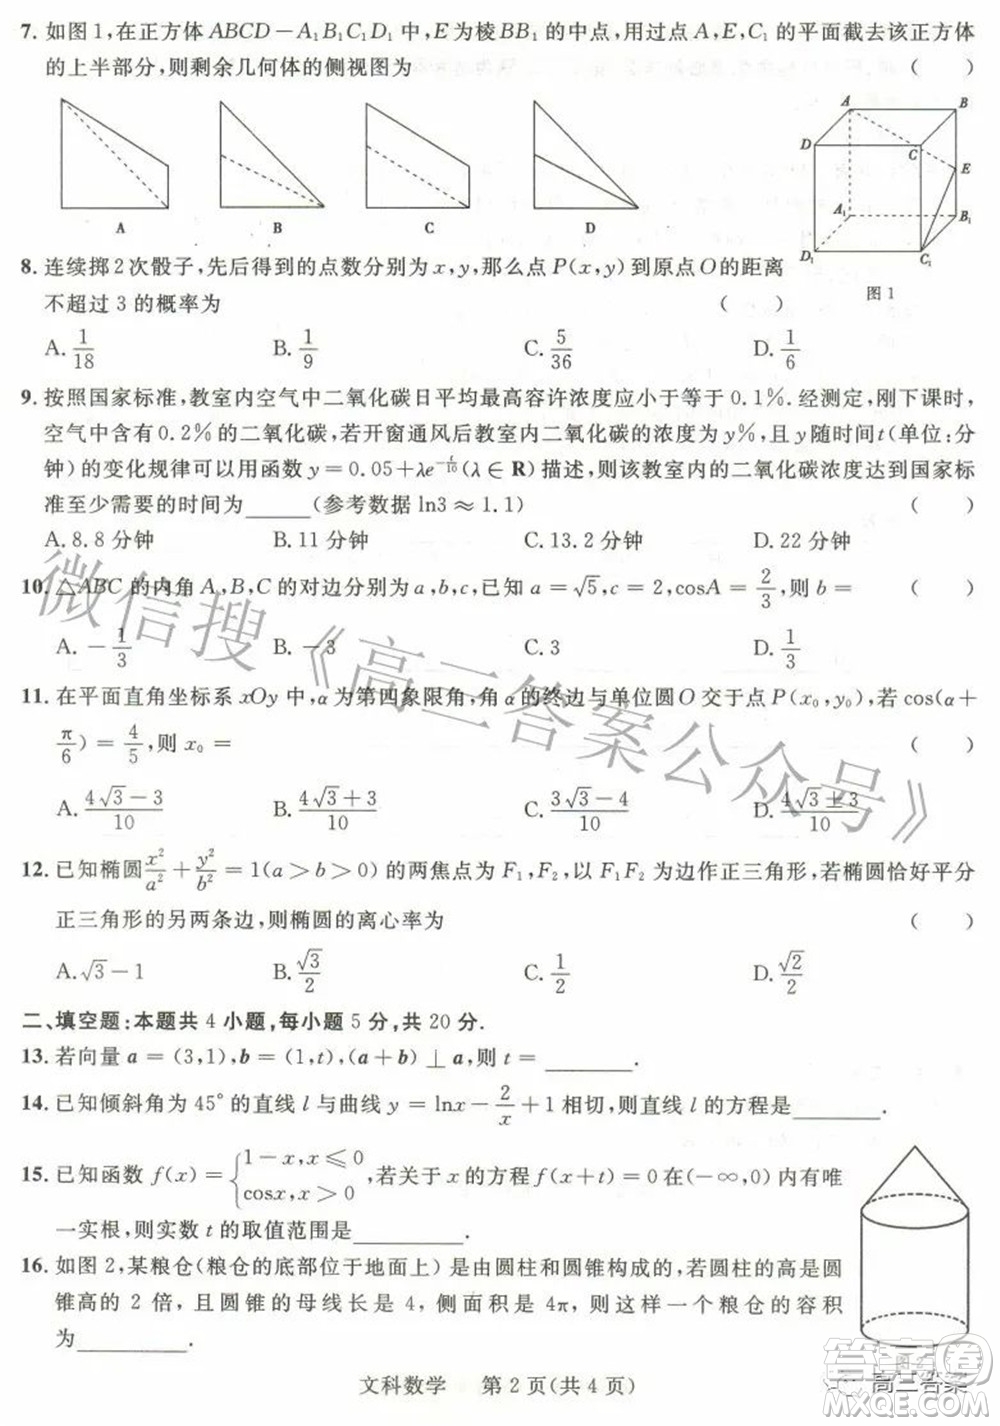 7. 如图1,在正方体ABCD-A₁B₁C₁D₁中,E为棱BB₁的中点,用过点A,E,C₁的平面截去该正方体
的上半部分,则剩余几何体的侧视图为 ( )
A B C D
A B D C E A₁ B₁ D₁ C₁
图1
8. 连续掷2次骰子,先后得到的点数分别为x,y,那么点P(x,y)到原点O的距离
不超过3的概率为 ( )
A. 1/18 B. 1/9 C. 5/36 D. 1/6
9. 按照国家标准,教室内空气中二氧化碳日平均最高容许浓度应小于等于0.1%.经测定,刚下课时,
空气中含有0.2%的二氧化碳,若开窗通风后教室内二氧化碳的浓度为y%,且y随时间t(单位:分
钟)的变化规律可以用函数y=0.05+λe^(-t/10)(λ∈R)描述,则该教室内的二氧化碳浓度达到国家标
准至少需要的时间为______(参考数据ln3≈1.1) ( )
A. 8.8分钟 B. 11分钟 C. 13.2分钟 D. 22分钟
10. △ABC的内角A,B,C的对边分别为a,b,c,已知a=√5,c=2,cosA=2/3,则b= ( )
A. -1/3 B. -3 C. 3 D. 1/3
11. 在平面直角坐标系xOy中,α为第四象限角,角α的终边与单位圆O交于点P(x₀,y₀),若cos(α+
π/6)=4/5,则x₀= ( )
A. (4√3-3)/10 B. (4√3+3)/10 C. (3√3-4)/10 D. (4√3±3)/10
12. 已知椭圆x²/a²+y²/b²=1(a>b>0)的两焦点为F₁,F₂,以F₁F₂为边作正三角形,若椭圆恰好平分
正三角形的另两条边,则椭圆的离心率为 ( )
A. √3-1 B. √3/2 C. 1/2 D. √2/2
二、填空题:本题共4小题,每小题5分,共20分.
13. 若向量a=(3,1),b=(1,t),(a+b)⊥a,则t=________.
14. 已知倾斜角为45°的直线l与曲线y=lnx-2/x+1相切,则直线l的方程是________.
15. 已知函数f(x)={1-x,x≤0 cosx,x>0,若关于x的方程f(x+t)=0在(-∞,0)内有唯
一实根,则实数t的取值范围是________.
16. 如图2,某粮仓(粮仓的底部位于地面上)是由圆柱和圆锥构成的,若圆柱的高是圆
锥高的2倍,且圆锥的母线长是4,侧面积是4π,则这样一个粮仓的容积
为________.
图2
文科数学 第2页(共4页)
微信搜《高三答案公众号》
答案圈
高三答案